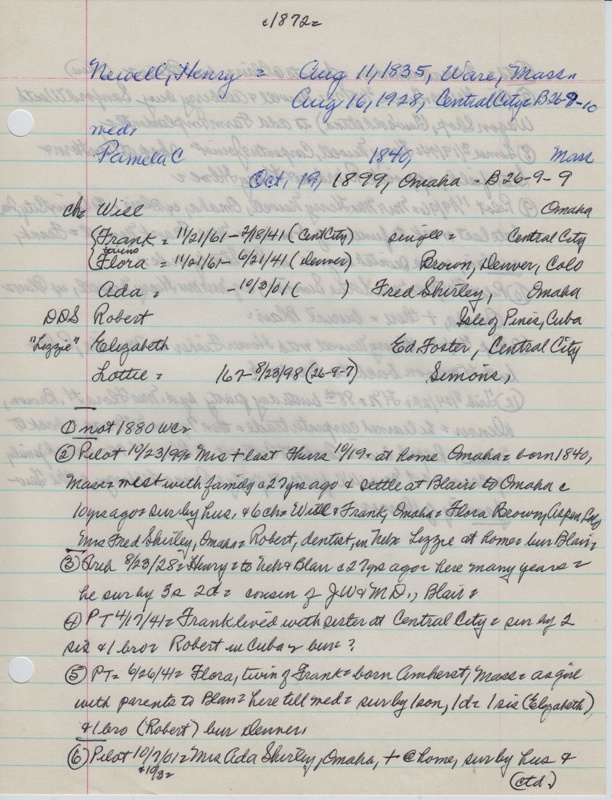 c1872=
Newell, Henry = Aug 11, 1835, Ware, Mass.
Aug 16, 1928, Central City = B26-9-10
med:
Pamela C 1840, Mass
Oct, 19, 1899, Omaha - B26-9-9
ch: Will Omaha
Frank = 11/21/61 - 2/18/41 (CentCity) single = Central City
twins
Flora = 11/21/61 - 6/21/41 (Denver) Brown, Denver, Colo
Ada = - 10/3/01 ( ) Fred Shirley, Omaha
DDS Robert Isle of Pines, Cuba
"Lizzie" Elizabeth Ed. Foster, Central City
Lottie = 167 - 8/23/98 (26-9-7) Simons,
① not 1880 WCN
② Pilot 10/23/99= Mrs + last Thurs 10/19= at home Omaha= born 1840,
Mass= west with family c27 yrs ago & settle at Blair= to Omaha c
10 yrs ago= sur by hus, & 6 ch= Will & Frank, Omaha= Flora Brown, Aspen, Colo,
Mrs Fred Shirley, Omaha= Robert, dentist, in Neb= Lizzie at home= bur Blair=
③ 8/23/28= Henry= to Neb & Blair c27 yrs ago= here many years=
he sur by 3s 2d= cousin of JW & M.D., Blair=
④ PT 4/17/41= Frank lived with sister at Central City= sur by 2
sis & 1 bro= Robert in Cuba= bur ?
⑤ PT= 6/26/41= Flora, twin of Frank= born Amherst, Mass= as girl
with parents to Blair= here till med= sur by 1 son, 1d= 1 sis (Elizabeth),
& 1 bro (Robert) bur Denver.
⑥ Pilot 10/7/01= Mrs Ada Shirley, Omaha, + @ home, sur by hus &
(ctd.)